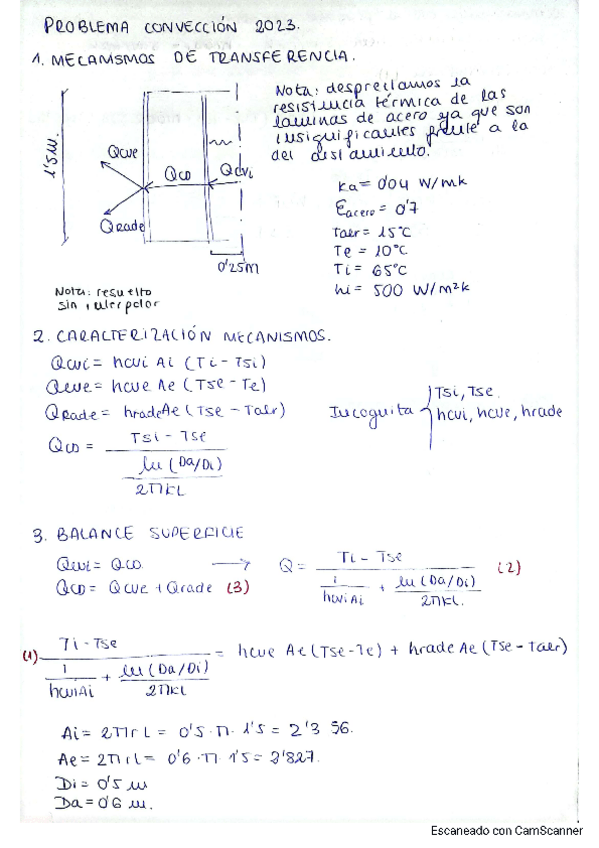 PROBLEMA CONVECCIÓN 2023.
1. MECANISMOS DE TRANSFERENCIA.
Nota: despreciamos la
resistencia térmica de las
láminas de acero ya que son
insignificantes frente a la
del aislamiento.
1'5m.
Qcve
Qcd
Qcvi
Qrade
0'25m
ka = 0'04 W/mk
Eacero = 0'7
Taer = 15°C
Te = 10°C
Ti = 65°C
hi = 500 W/m²k
Nota: resuelto
sin interpolar
2. CARACTERIZACIÓN MECANISMOS.
Qcvi = hcvi Ai (Ti - Tsi)
Qcve = hcve Ae (Tse - Te)
Qrade = hrade Ae (Tse - Taer)
Qcd = Tsi - Tse
ln (Da/Di)
2πkL
Incognita { Tsi, Tse.
hcvi, hcve, hrade
3. BALANCE SUPERFICIE
Qcvi = Qcd → Q = Ti - Tse (2)
1 / hcvi Ai + ln (Da/Di) / 2πkL.
Qcd = Qcve + Qrade (3)
(1) Ti - Tse = hcve Ae (Tse - Te) + hrade Ae (Tse - Taer)
1 / hcvi Ai + ln (Da/Di) / 2πkL
Ai = 2πrL = 0'5 · π · 1'5 = 2'356.
Ae = 2πrL = 0'6 · π · 1'5 = 2'827.
Di = 0'5 m
Da = 0'6 m.
Escaneado con CamScanner